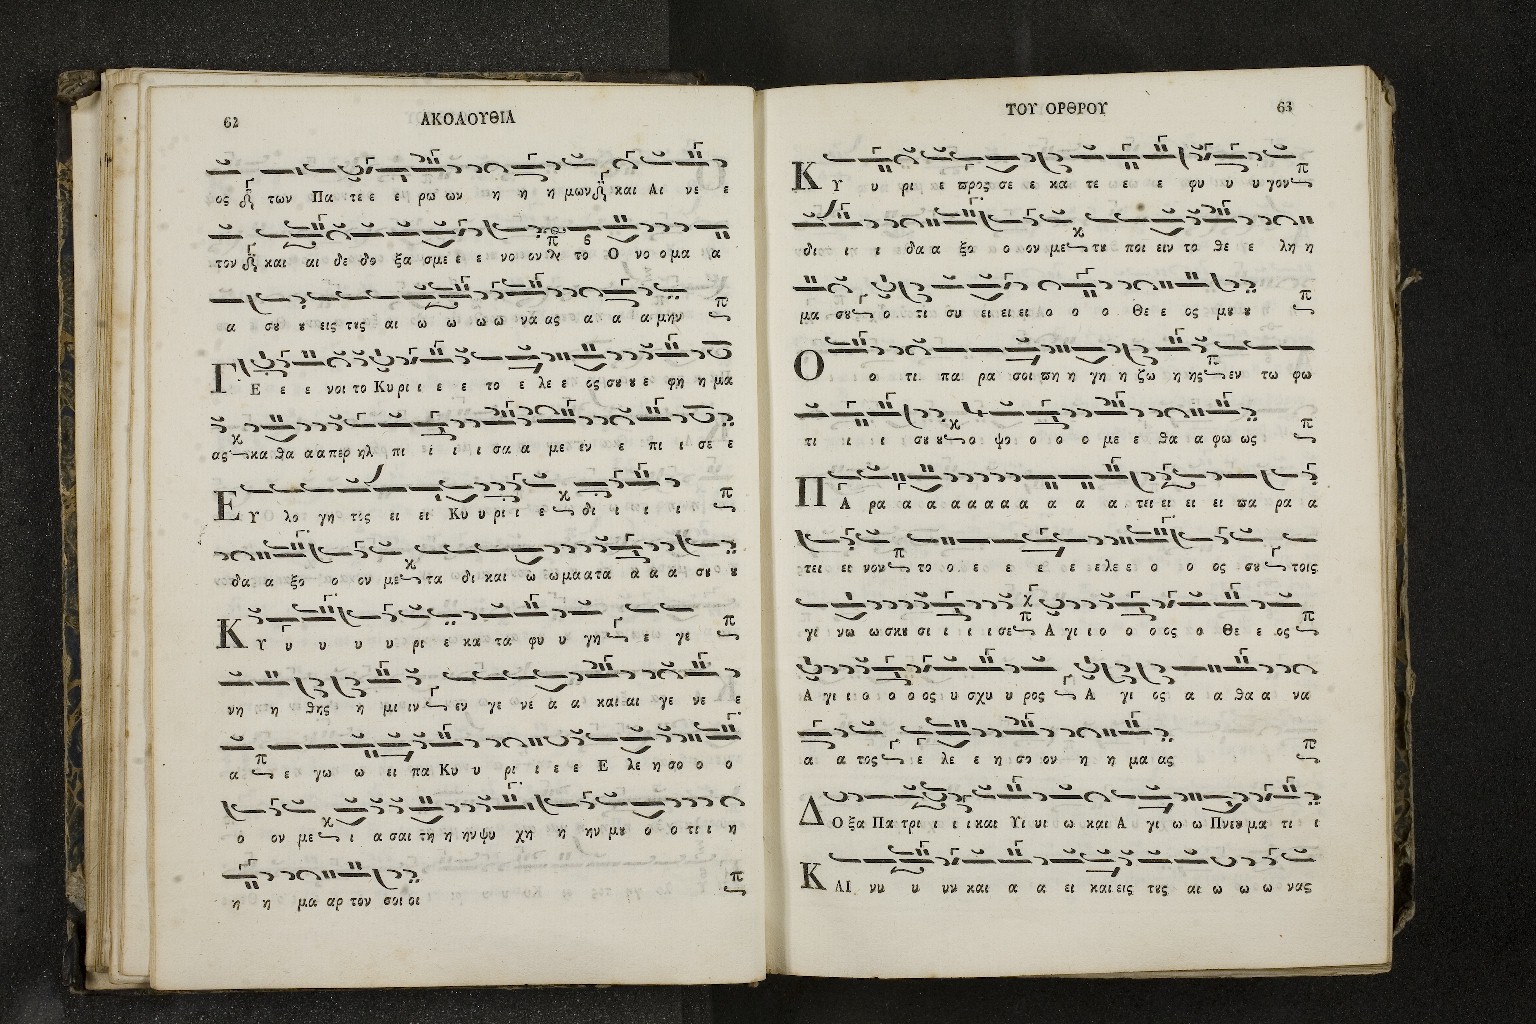 62 ΑΚΟΛΟΥΘΙΑ
ος των Πα τε ε ε ρω ων η η η μων και Αι νε ε
τον και αι δε δο ξα σμε ε ε νο ον το Ο νο ο μα α
α σου ου εις τους αι ω ω ω ω να ας α α α μην
ΓΕ ε ε νοι το Κυ ρι ι ε ε το ε λε ε ος σου ου ε φη η μα
ας κα θα α α περ ηλ πι ι ι ι σα α με εν ε πι ι σε ε
ΕΥ λο γη τος ει ει Κυ υ ρι ι ε δι ι ι ι
δα α ξο ο ον με τα δι και ω ω μα α τα α α α σου ου
ΚΥ υ υ υ υ ρι ε κα τα φυ υ γη ε γε
νη η θης η μι ιν εν γε νε α α και αι γε νε ε
α ε γω ω ει πα Κυ υ ρι ι ε ε Ε λε η σο ο ο
ο ον με ι α σαι τη η ην ψυ χη η ην μου ο ο τι ι η
η η μα αρ τον σοι οι
ΤΟΥ ΟΡΘΡΟΥ 63
ΚΥ υ ρι ε προς σε ε κα τε ε ε φυ υ υ γον
δι ι ι δα α ξο ο ον με του ποι ειν το θε ε λη η
μα σου ο τι συ ει ει ει ο ο ο Θε ε ος μου ου
Ο ο τι πα ρα σοι πη η γη η ζω η ης εν τω φω
τι ι ι ι σου ου ο ψο ο ο ο με ε θα α φω ως
ΠΑ ρα α α α α α α α α α τει ει ει ει πα ρα α
τει ει νον το ο ε ε ε ε ε λε ε ο ο ος σου τοις
γι νω ω σκου σι ι ι ι σε Α γι ι ο ο ο ος ο Θε ε ος
Α γι ι ο ο ο ος ι σχυ υ ρος Α γι ος α α θα α να
α α τος ε λε ε η σο ον η η μα ας
ΔΟ ξα Πα τρι ι ι ι και Υι υι ω και Α γι ω ω Πνευ μα τι ι
ΚΑΙ νυ υ υν και α α ει και εις τους αι ω ω ω νας